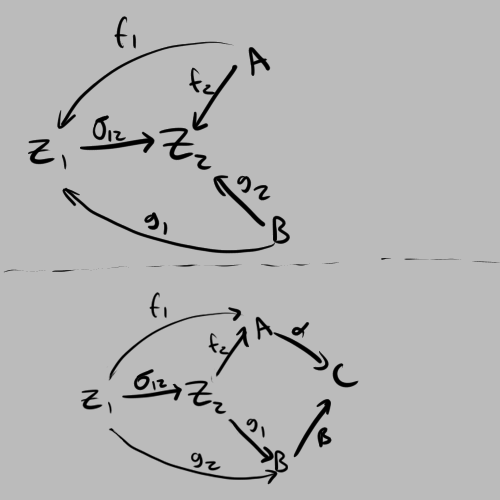 f₁
A
f₂
Z₁ σ₁₂ Z₂
g₂
g₁
B
f₁
A α
f₂
C
Z₁ σ₁₂ Z₂
g₁
β
g₂ B